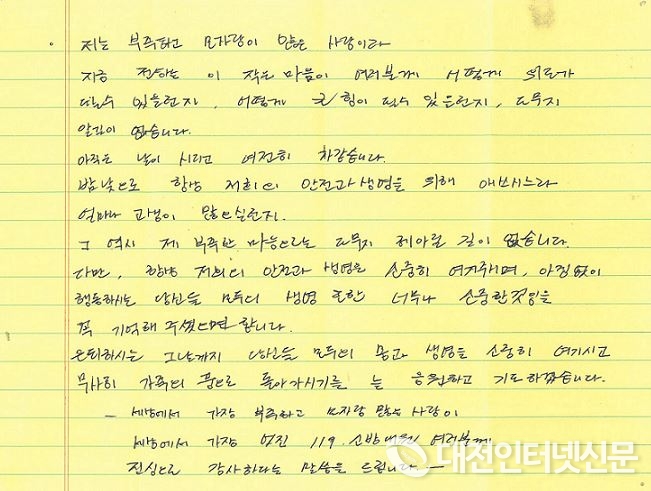 · 저는 부족하고 모자람이 많은 사람이라
지금 전하는 이 작은 마음이 여러분께 어떻게 위로가
될수 있을런지, 어떻게 큰 힘이 될수 있을런지, 도무지
알길이 없습니다.
아직은 날이 시리고 여전히 차갑습니다.
밤낮으로 항상 저희의 안전과 생명을 위해 애쓰시느라
얼마나 고생이 많으실런지.
그 역시 제 부족한 마음으로는 도무지 헤아릴 길이 없습니다.
다만, 항상 저희의 안전과 생명을 소중히 여겨주시며, 아낌없이
행동하시는 당신들 모두의 생명 또한 너무나 소중한것임을
꼭 기억해 주셨으면 합니다.
은퇴하시는 그날까지 당신들 모두의 몸과 생명을 소중히 여기시고
무사히 가족의 품으로 돌아가시기를 늘 응원하고 기도하겠습니다.
- 세상에서 가장 부족하고 모자람 많은 사람이
세상에서 가장 멋진 119 소방대원 여러분께
진심으로 감사하다는 말씀을 드립니다 -
대전인터넷신문